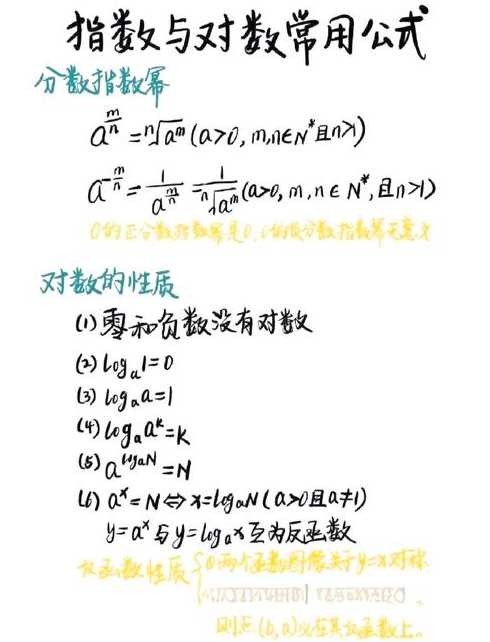 指数与对数常用公式
分数指数幂
a^{m/n} = ⁿ√a^m (a>0, m,n∈N*且n>1)
a^{-m/n} = 1/a^{m/n} = 1/ⁿ√a^m (a>0, m,n∈N*,且n>1)
0的正分数指数幂是0,0的负分数指数幂无意义
对数的性质
(1) 零和负数没有对数
(2) log_a 1=0
(3) log_a a=1
(4) log_a a^k=k
(5) a^{log_a N}=N
(6) a^x=N⇔x=log_a N (a>0且a≠1)
y=a^x与y=log_a x互为反函数
反函数性质{①两个函数图像关于y=x对称
则点(b,a)必在其反函数上.